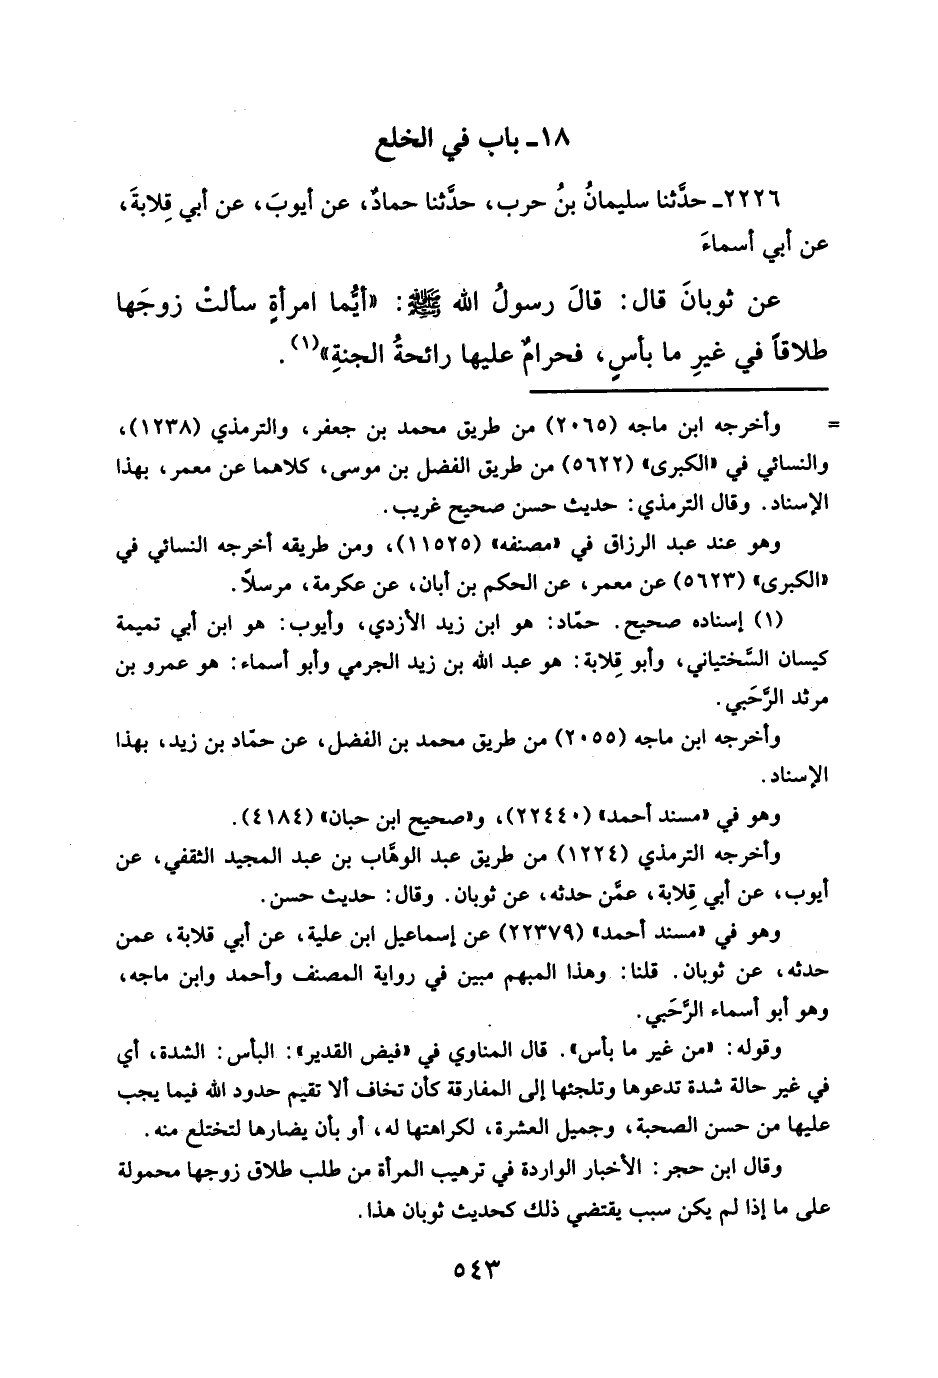 ١٨ـ باب في الخلع
٢٢٢٦ـ حدَّثنا سليمانُ بنُ حرب، حدَّثنا حمادٌ، عن أيوبَ، عن أبي قِلابةَ،
عن أبي أسماءَ
عن ثوبانَ قال: قالَ رسولُ الله ﷺ: «أيُّما امرأةٍ سألتْ زوجَها
طلاقاً في غيرِ ما بأسٍ، فحرامٌ عليها رائحةُ الجنةِ»(١).
= وأخرجه ابن ماجه (٢٠٦٥) من طريق محمد بن جعفر، والترمذي (١٢٣٨)،
والنسائي في «الكبرى» (٥٦٢٢) من طريق الفضل بن موسى، كلاهما عن معمر، بهذا
الإسناد. وقال الترمذي: حديث حسن صحيح غريب.
وهو عند عبد الرزاق في «مصنفه» (١١٥٢٥)، ومن طريقه أخرجه النسائي في
«الكبرى» (٥٦٢٣) عن معمر، عن الحكم بن أبان، عن عكرمة، مرسلاً.
(١) إسناده صحيح. حمّاد: هو ابن زيد الأزدي، وأيوب: هو ابن أبي تميمة
كيسان السَّختياني، وأبو قِلابة: هو عبد الله بن زيد الجرمي وأبو أسماء: هو عمرو بن
مرثد الرَّحَبي.
وأخرجه ابن ماجه (٢٠٥٥) من طريق محمد بن الفضل، عن حمّاد بن زيد، بهذا
الإسناد.
وهو في «مسند أحمد» (٢٢٤٤٠)، و«صحيح ابن حبان» (٤١٨٤).
وأخرجه الترمذي (١٢٢٤) من طريق عبد الوهَّاب بن عبد المجيد الثقفي، عن
أيوب، عن أبي قِلابة، عمَّن حدثه، عن ثوبان. وقال: حديث حسن.
وهو في «مسند أحمد» (٢٢٣٧٩) عن إسماعيل ابن علية، عن أبي قلابة، عمن
حدثه، عن ثوبان. قلنا: وهذا المبهم مبين في رواية المصنف وأحمد وابن ماجه،
وهو أبو أسماء الرَّحَبي.
وقوله: «من غير ما بأس». قال المناوي في «فيض القدير»: البأس: الشدة، أي
في غير حالة شدة تدعوها وتلجئها إلى المفارقة كأن تخاف ألا تقيم حدود الله فيما يجب
عليها من حسن الصحبة، وجميل العشرة، لكراهتها له، أو بأن يضارها لتختلع منه.
وقال ابن حجر: الأخبار الواردة في ترهيب المرأة من طلب طلاق زوجها محمولة
على ما إذا لم يكن سبب يقتضي ذلك كحديث ثوبان هذا.
٥٤٣